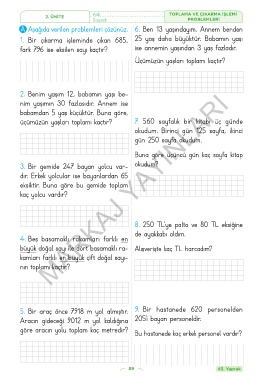 2. ÜNİTE
TOPLAMA VE ÇIKARMA İŞLEMİ
PROBLEMLERİ
A Aşağıda verilen problemleri çözünüz.
1. Bir çıkarma işleminde çıkan 685,
fark 796 ise eksilen sayı kaçtır?
2. Benim yaşım 12, babamın yaşı be-
nim yaşımın 30 fazlasıdır. Annem ise
babamdan 5 yaş küçüktür. Buna göre,
üçümüzün yaşları toplamı kaçtır?
3. Bir gemide 247 bayan yolcu var-
dır. Erkek yolcular ise bayanlardan 65
eksiktir. Buna göre bu gemide toplam
kaç yolcu vardır?
4. Beş basamaklı rakamları farklı en
büyük doğal sayı ile dört basamaklı ra-
kamları farklı en büyük çift doğal sayı-
nın toplamı kaçtır?
5. Bir araç önce 7318 m yol almıştır.
Aracın gideceği 9012 m yol kaldığına
göre aracın yolu toplam kaç metredir?
6. Ben 13 yaşındayım. Annem benden
25 yaş daha büyüktür. Babamın yaşı
ise annemin yaşından 3 yaş fazladır.
Üçümüzün yaşları toplamı kaçtır?
7. 560 sayfalık bir kitabı üç günde
okudum. Birinci gün 125 sayfa, ikinci
gün 250 sayfa okudum.
Buna göre üçüncü gün kaç sayfa kitap
okudum?
8. 250 TL'ye palto ve 80 TL eksiğine
de ayakkabı aldım.
Alışverişte kaç TL harcadım?
9. Bir hastanede 620 personelden
205'i bayan personeldir.
Bu hastanede kaç erkek personel vardır?
MARKAJ YAYINLARI
89
45. Yaprak